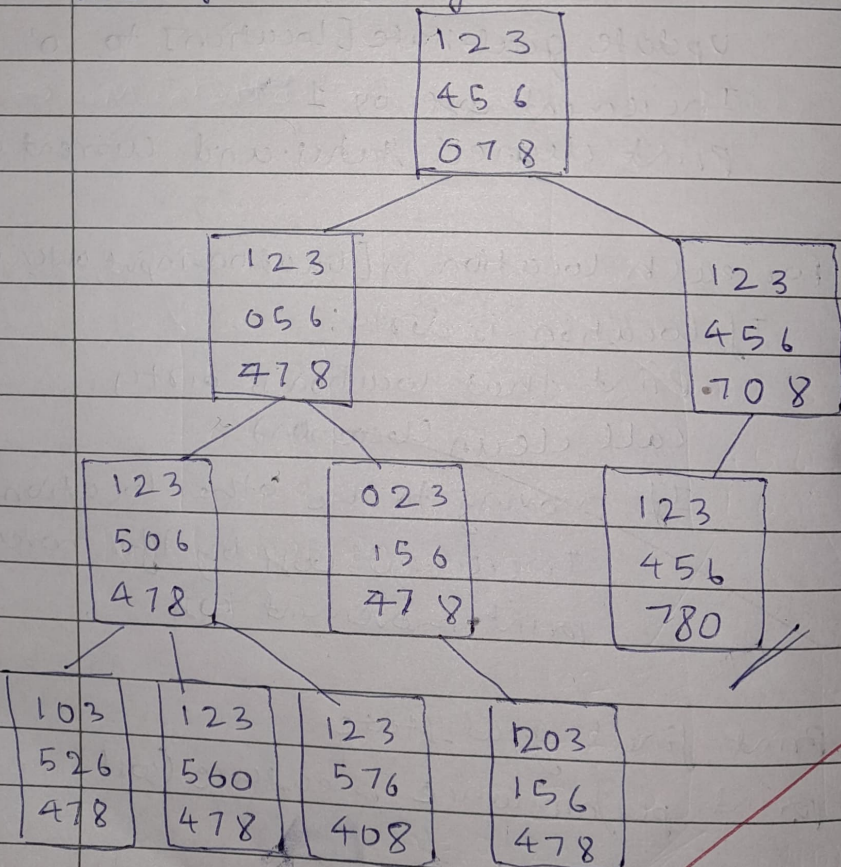 1 2 3
4 5 6
0 7 8
1 2 3
0 5 6
4 7 8
1 2 3
4 5 6
7 0 8
1 2 3
5 0 6
4 7 8
0 2 3
1 5 6
4 7 8
1 2 3
4 5 6
7 8 0
1 0 3
5 2 6
4 7 8
1 2 3
5 6 0
4 7 8
1 2 3
5 7 6
4 0 8
203
1 5 6
4 7 8